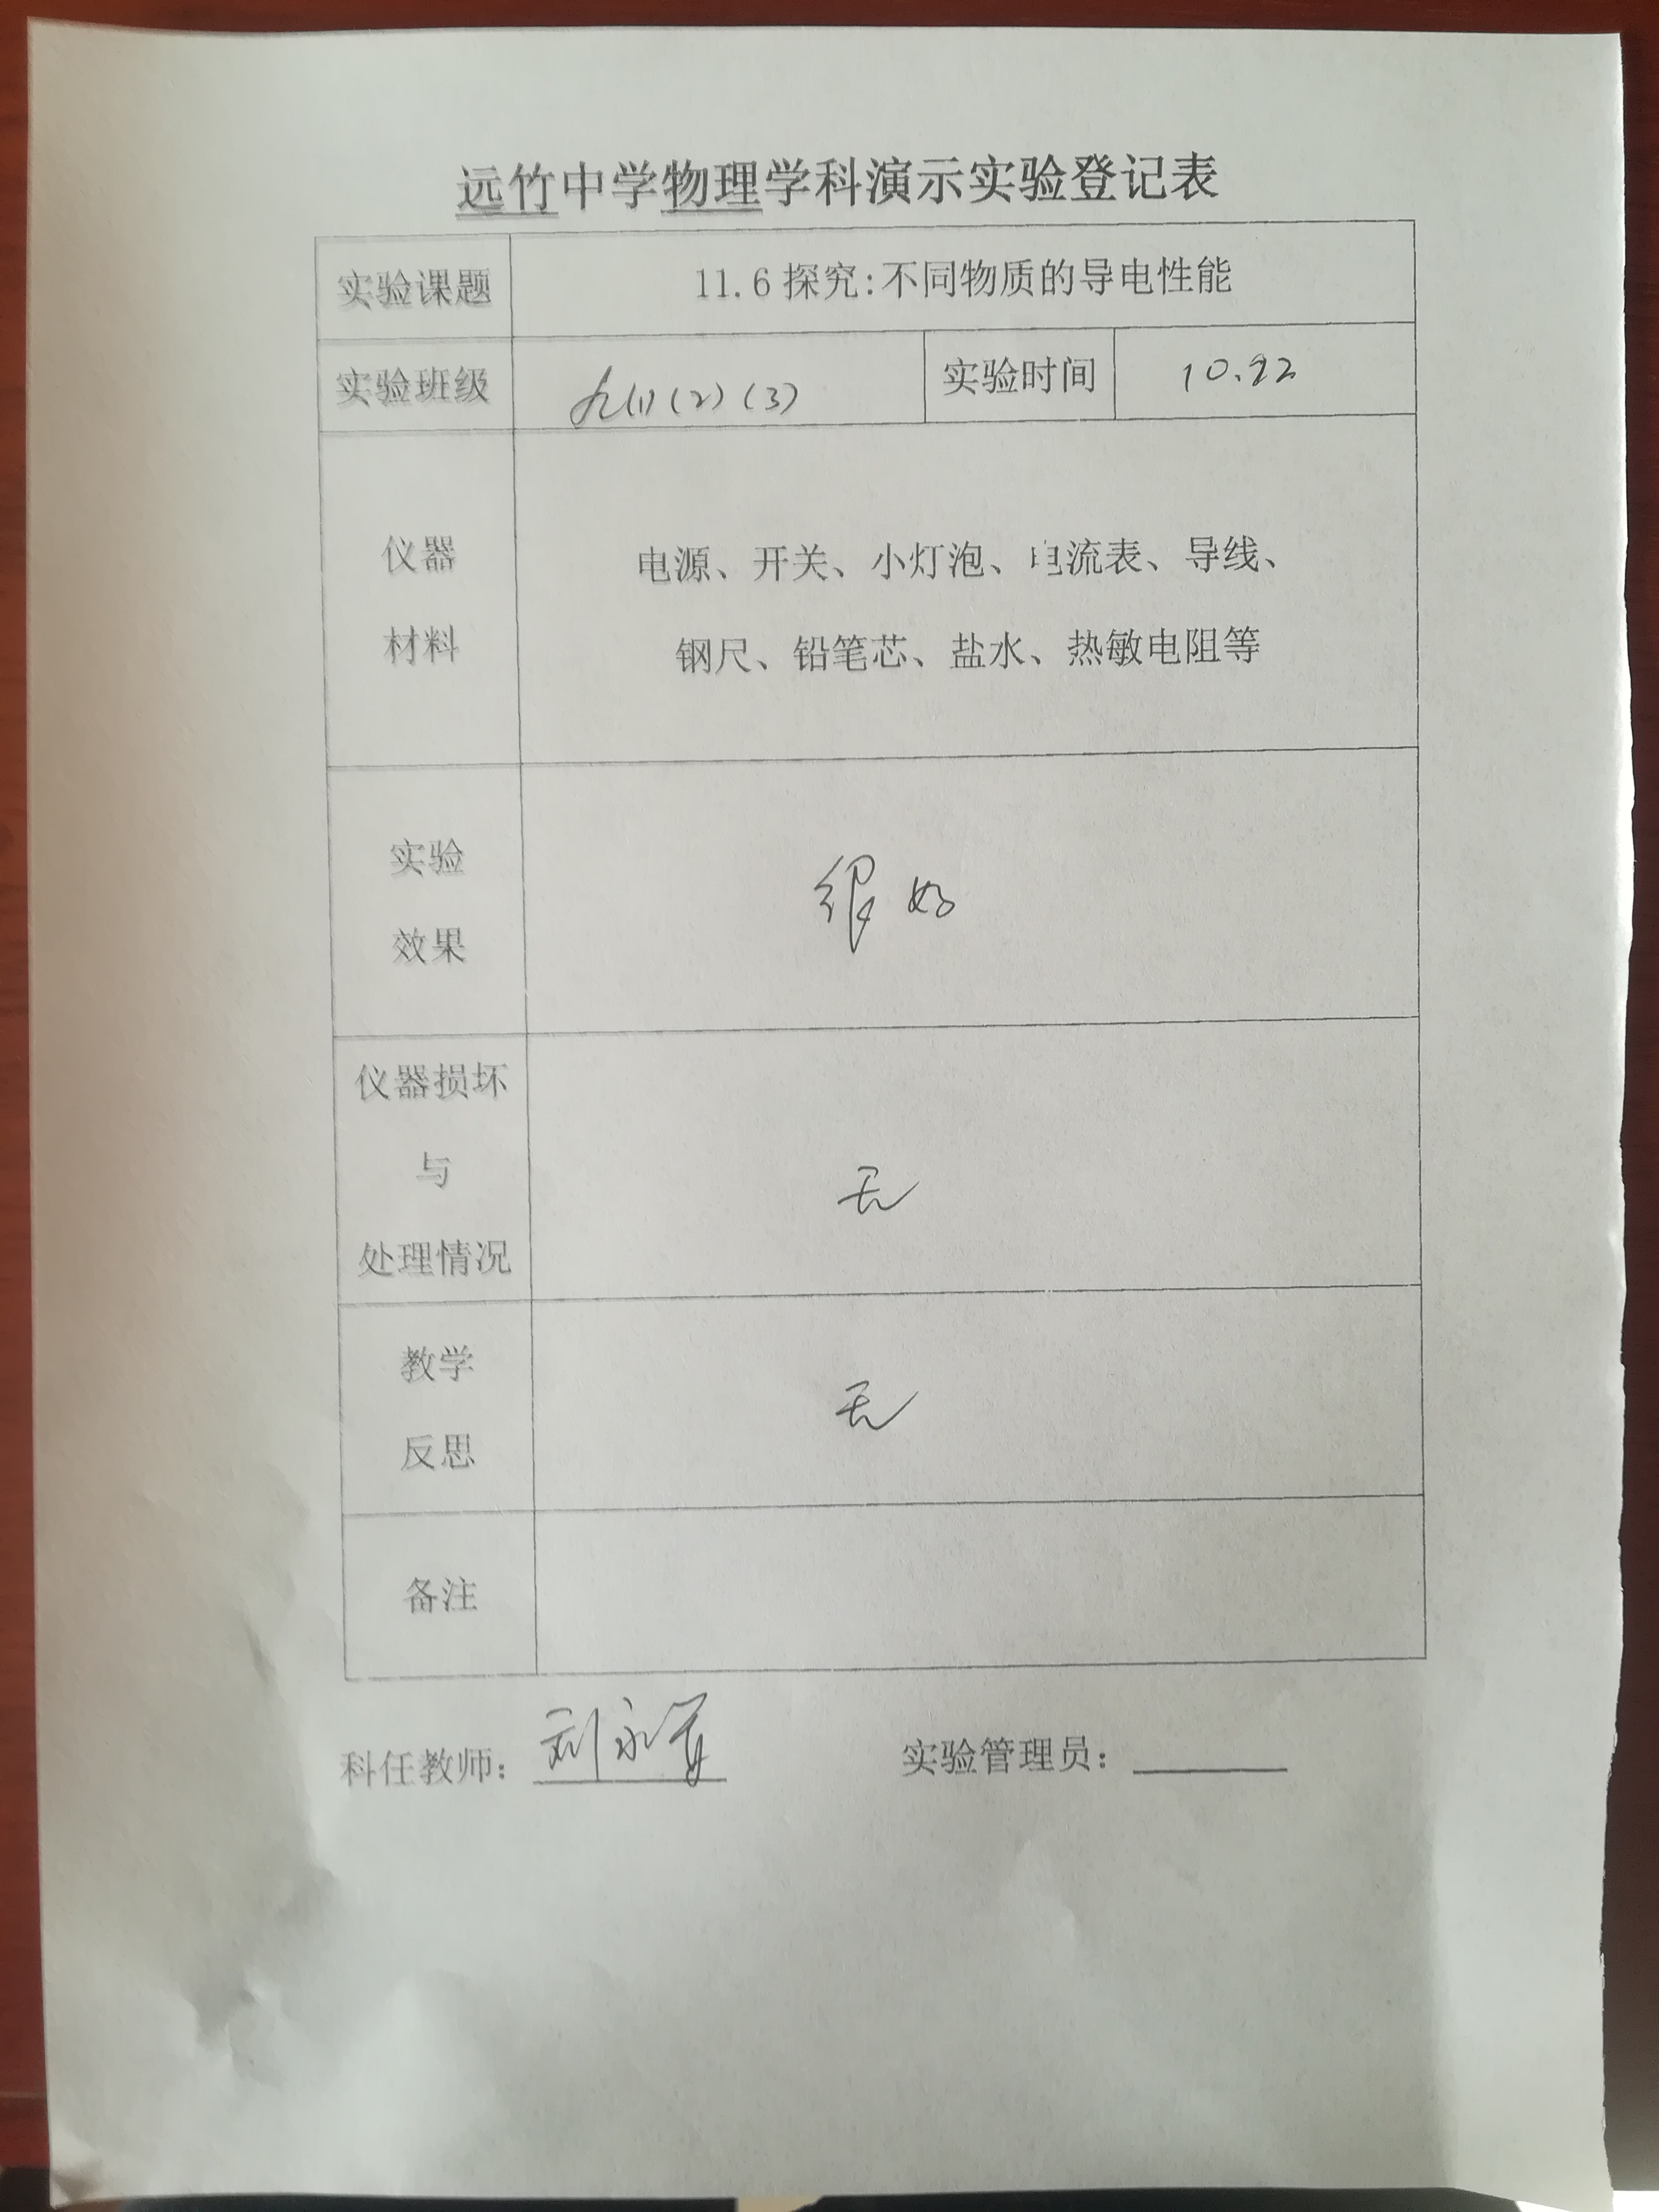 远竹中学物理学科演示实验登记表
实验课题
11.6探究:不同物质的导电性能
实验班级
九(1)(2)(3)
实验时间
10.22
仪器
材料
电源、开关、小灯泡、电流表、导线、
钢尺、铅笔芯、盐水、热敏电阻等
实验
效果
很好
仪器损坏
与
处理情况
无
教学
反思
无
备注
科任教师：刘永
实验管理员：